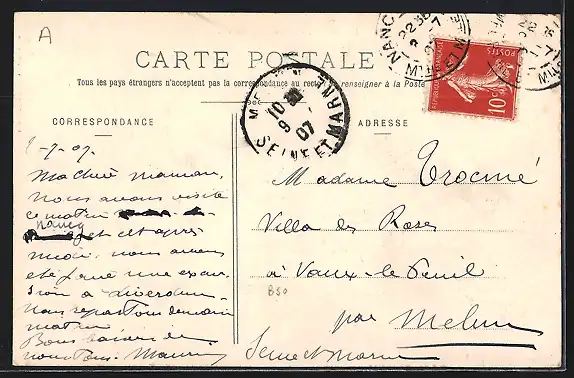 A
CARTE POSTALE
Tous les pays étrangers n'acceptent pas la correspondance au recto (se renseigner à la Poste
CORRESPONDANCE
ADRESSE
NANCY
MELUN
10
9 - 7
07
SEINE ET MARNE
REPUBLIQUE FRANÇAISE
POSTES
10
-7-07.
Ma chère maman,
Nous avons visité
ce matin
Nancy et cet après
midi, nous avons
été faire une excur
sion à
Nous repartons demain
matin
Bons baisers de
nous tous. Maurice
Madame Trocmé
Villa des Roses
à Vaux-le-Penil
par Melun
Seine et Marne
B50